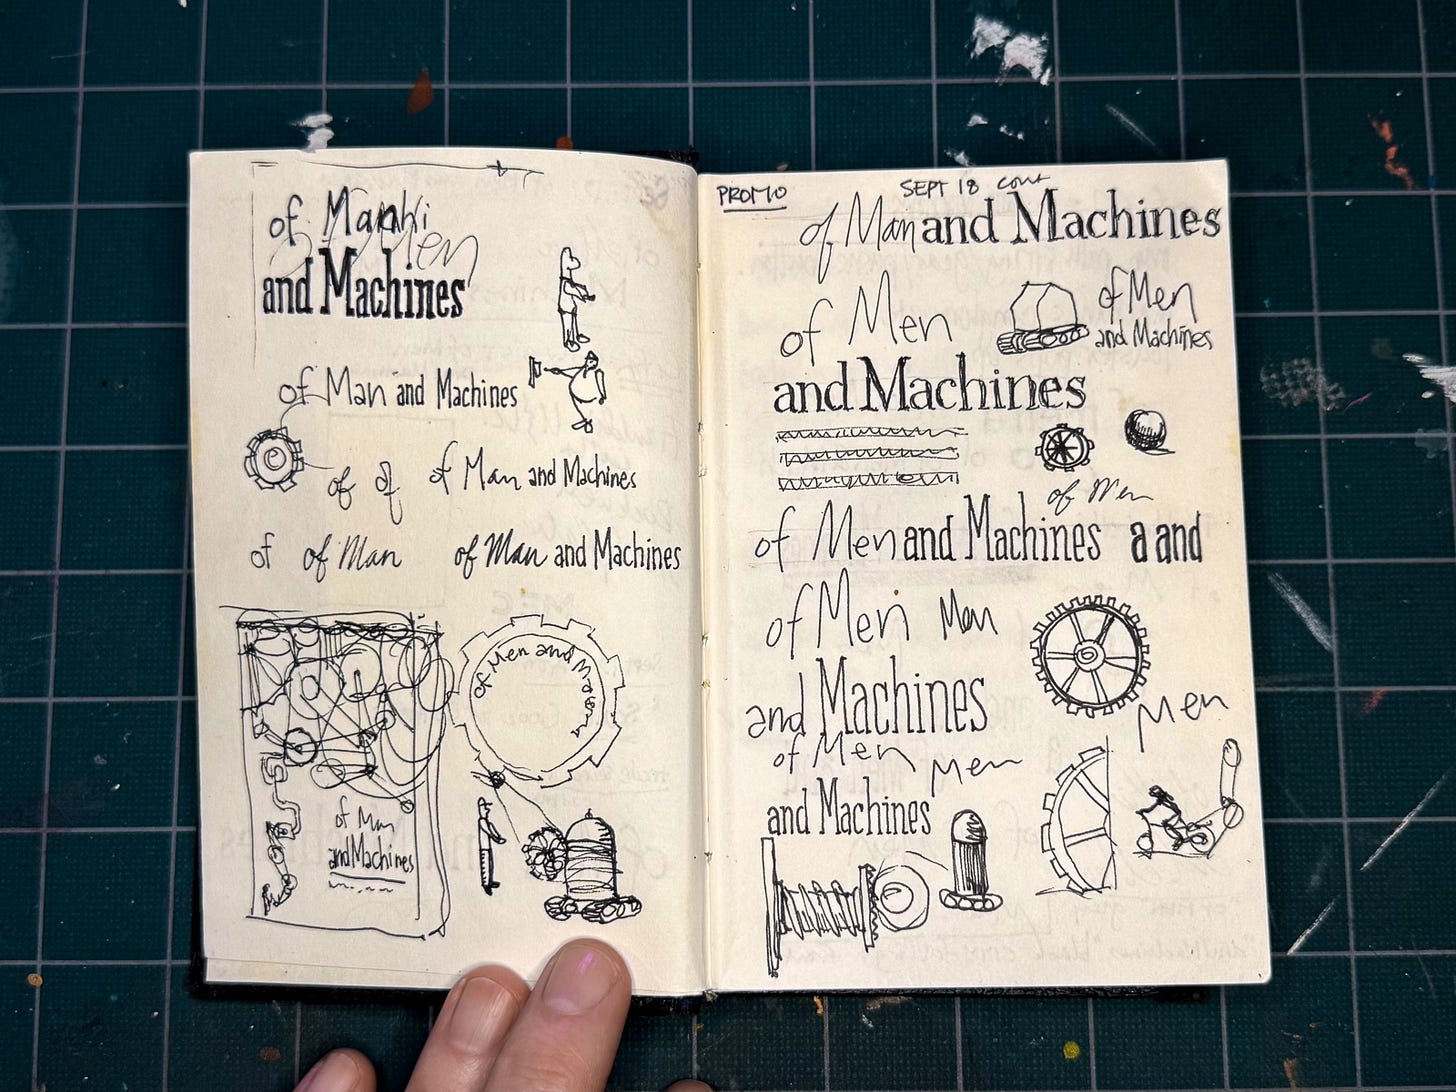 of Man
Men
and Machines
of Man and Machines
of of
of Man and Machines
of of Man
of Man and Machines
of Men and
of Man
and Machines
PROMO
SEPT 18 cont
of Man and Machines
of Men
of Men
and Machines
and Machines
of Men
of Men and Machines a and
of Men Men
and Machines
Men
of Men Men
and Machines